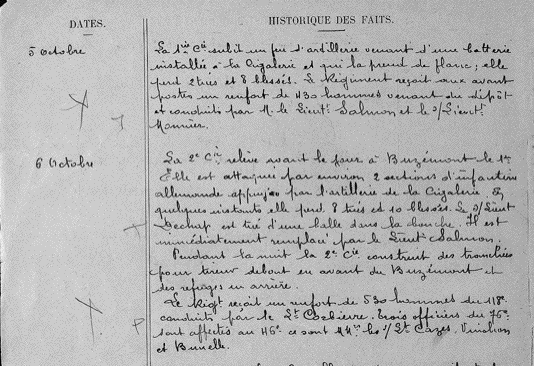 DATES.
HISTORIQUE DES FAITS.
5 Octobre
La 1ère Cie subit un feu d'artillerie venant d'une batterie
installée à la Cigalerie et qui la prend de flanc; elle
perd 2 tués et 8 blessés. Le Régiment reçoit aux avant
postes un renfort de 430 hommes venant du dépôt
et conduits par M. le Lieutt Salmon et le s/Lieutt
Monnier.
6 Octobre
La 2e Cie relève avant le jour à Buzémont la 1re
Elle est attaquée par environ 2 sections d'infanterie
allemande appuyées par l'artillerie de la Cigalerie. En
quelques instants elle perd 8 tués et 10 blessés. Le s/Lieut
Dechap est tué d'une balle dans la bouche. Il est
immédiatement remplacé par le Lieutt Salmon.
Pendant la nuit la 2e Cie construit des tranchées
pour tireur debout en avant du Buzémont et
des refuges en arrière.
Le Régt reçoit un renfort de 530 hommes du 118e
conduits par le Lt Corbierre. Trois officiers du 76e
sont affectés au 46e ce sont MM. les s/Lt Cazes,
et Brunelle.